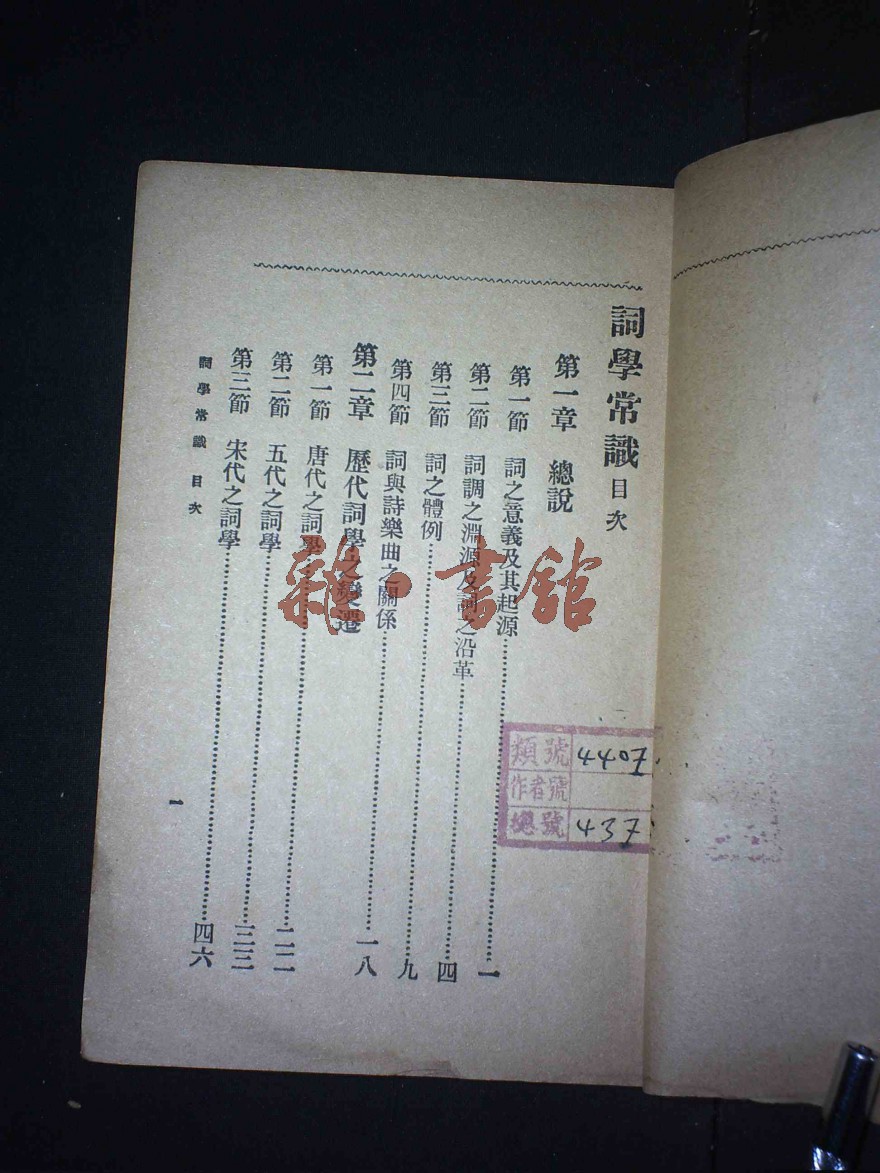 詞學常識 目次
第一章 總說
第一節 詞之意義及其起源……一
第二節 詞調之淵源及詞之沿革……四
第三節 詞之體例……九
第四節 詞與詩樂曲之關係……一八
第二章 歷代詞學之變遷
第一節 唐代之詞學……二二
第二節 五代之詞學……三三
第三節 宋代之詞學……四六
詞學常識 目次
一
類號 4407
作者號
總號 437
雜·書館